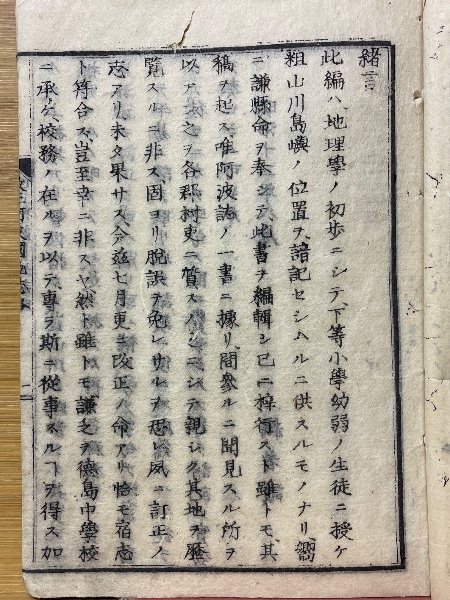 緒言
此編ハ地理學ノ初歩ニシテ、下等小學幼弱ノ生徒ニ授ケ
粗山川島嶼ノ位置ヲ諳記セシムルニ供スルモノナリ、嚮
ニ謙縣命ヲ奉シテ、此書ヲ編輯シ已ニ梓行スト雖トモ、其
稿ヲ起ス唯阿波誌ノ一書ニ據リ、間參ルニ聞見スル所ヲ
以テシ之ヲ各郡村吏ニ質スノミニシテ親シク其地ヲ歷
覽スルニ非ス、固ヨリ脱誤ヲ免レサルヲ恐レ夙ニ訂正ノ
志アリ未タ果サス、今茲七月更ニ改正ノ命アリ恰モ宿志
ト符合ス、豈至幸ニ非スヤ、然ト雖トモ謙之ヲ德島中學校
ニ承ケ、校務ノ在ルヲ以テ專ラ斯ニ從事スルヿヲ得ス加